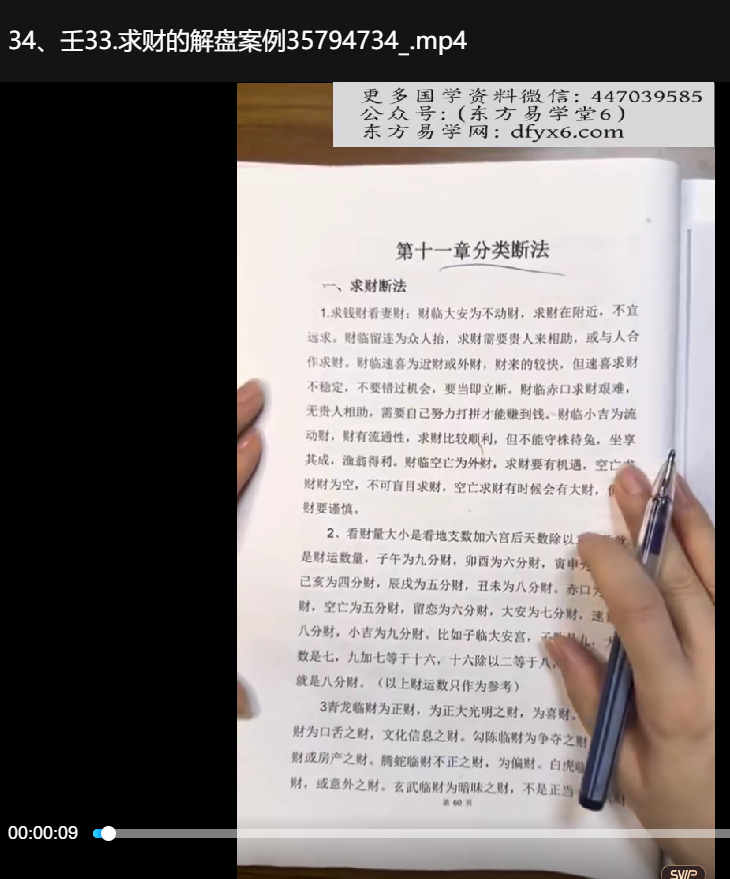 34、壬33.求财的解盘案例35794734_.mp4
更多国学资料微信：447039585
公众号：(东方易学堂6)
东方易学网：dfyx6.com
第十一章分类断法
一、求财断法
1.求钱财看妻财：财临大安为不动财，求财在附近，不宜
远求。财临留连为众人抬，求财需要贵人来相助，或与人合
作求财。财临速喜为近财或外财，财来的较快，但速喜求财
不稳定，不要错过机会，要当即立断。财临赤口求财艰难，
无贵人相助，需要自己努力打拼才能赚到钱。财临小吉为流
动财，财有流通性，求财比较顺利，但不能守株待兔，坐享
其成，渔翁得利。财临空亡为外财，求财要有机遇，空亡
财财为空，不可盲目求财，空亡求财有时候会有大财，
财要谨慎。
2、看财量大小是看地支数加六宫后天数除以
是财运数量，子午为九分财，卯酉为六分财，寅申
己亥为四分财，辰戌为五分财，丑未为八分财。赤口
财，空亡为五分财，留恋为六分财，大安为七分财，速
八分财，小吉为九分财。比如子临大安宫，
数是七，九加七等于十六，十六除以二等于八，
就是八分财。（以上财运数只作为参考）
3青龙临财为正财，为正大光明之财，为喜财。
财为口舌之财，文化信息之财。勾陈临财为争夺之财
财或房产之财。腾蛇临财不正之财，为偏财。白虎临
财，或意外之财。玄武临财为暗昧之财，不是正当
第 60 页
00:00:09
SVIP